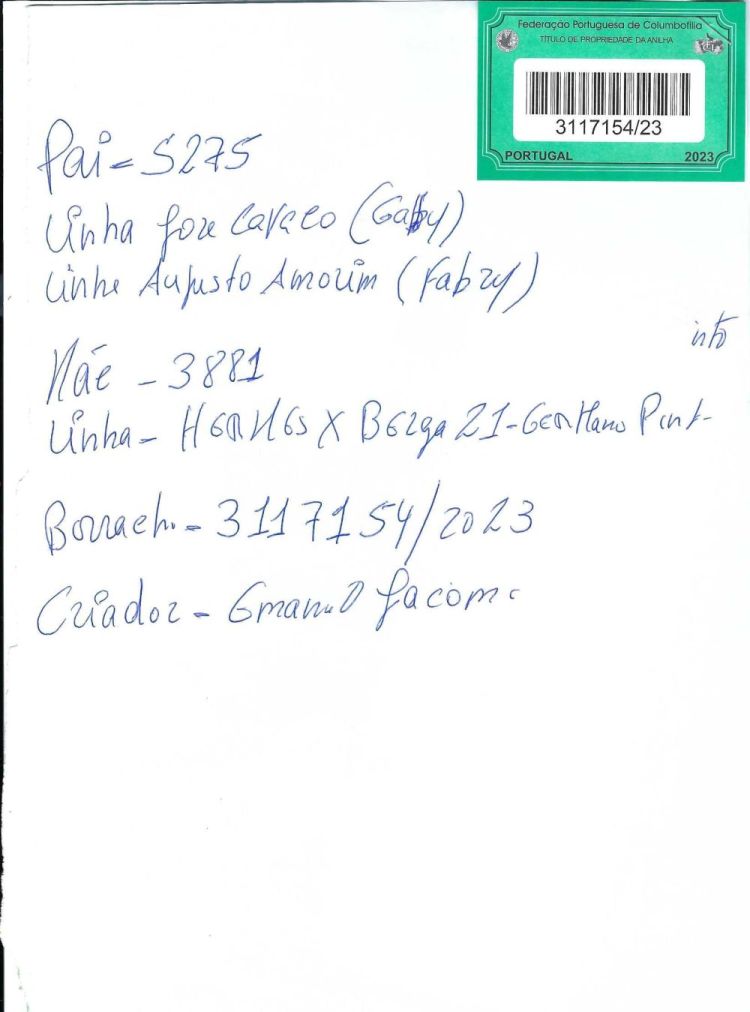 Federação Portuguesa de Columbofilia
TÍTULO DE PROPRIEDADE DA ANILHA
3117154/23
PORTUGAL 2023
Pai = 5275
Linha Jose Cavaco (Gabby)
Linha Augusto Amorim (Fabry)
Mãe - 3881
Linha - HERMES X Berga 21 - GERMano Pint-
Borrach. = 3117154/2023
Criador - Emanuel Jacome